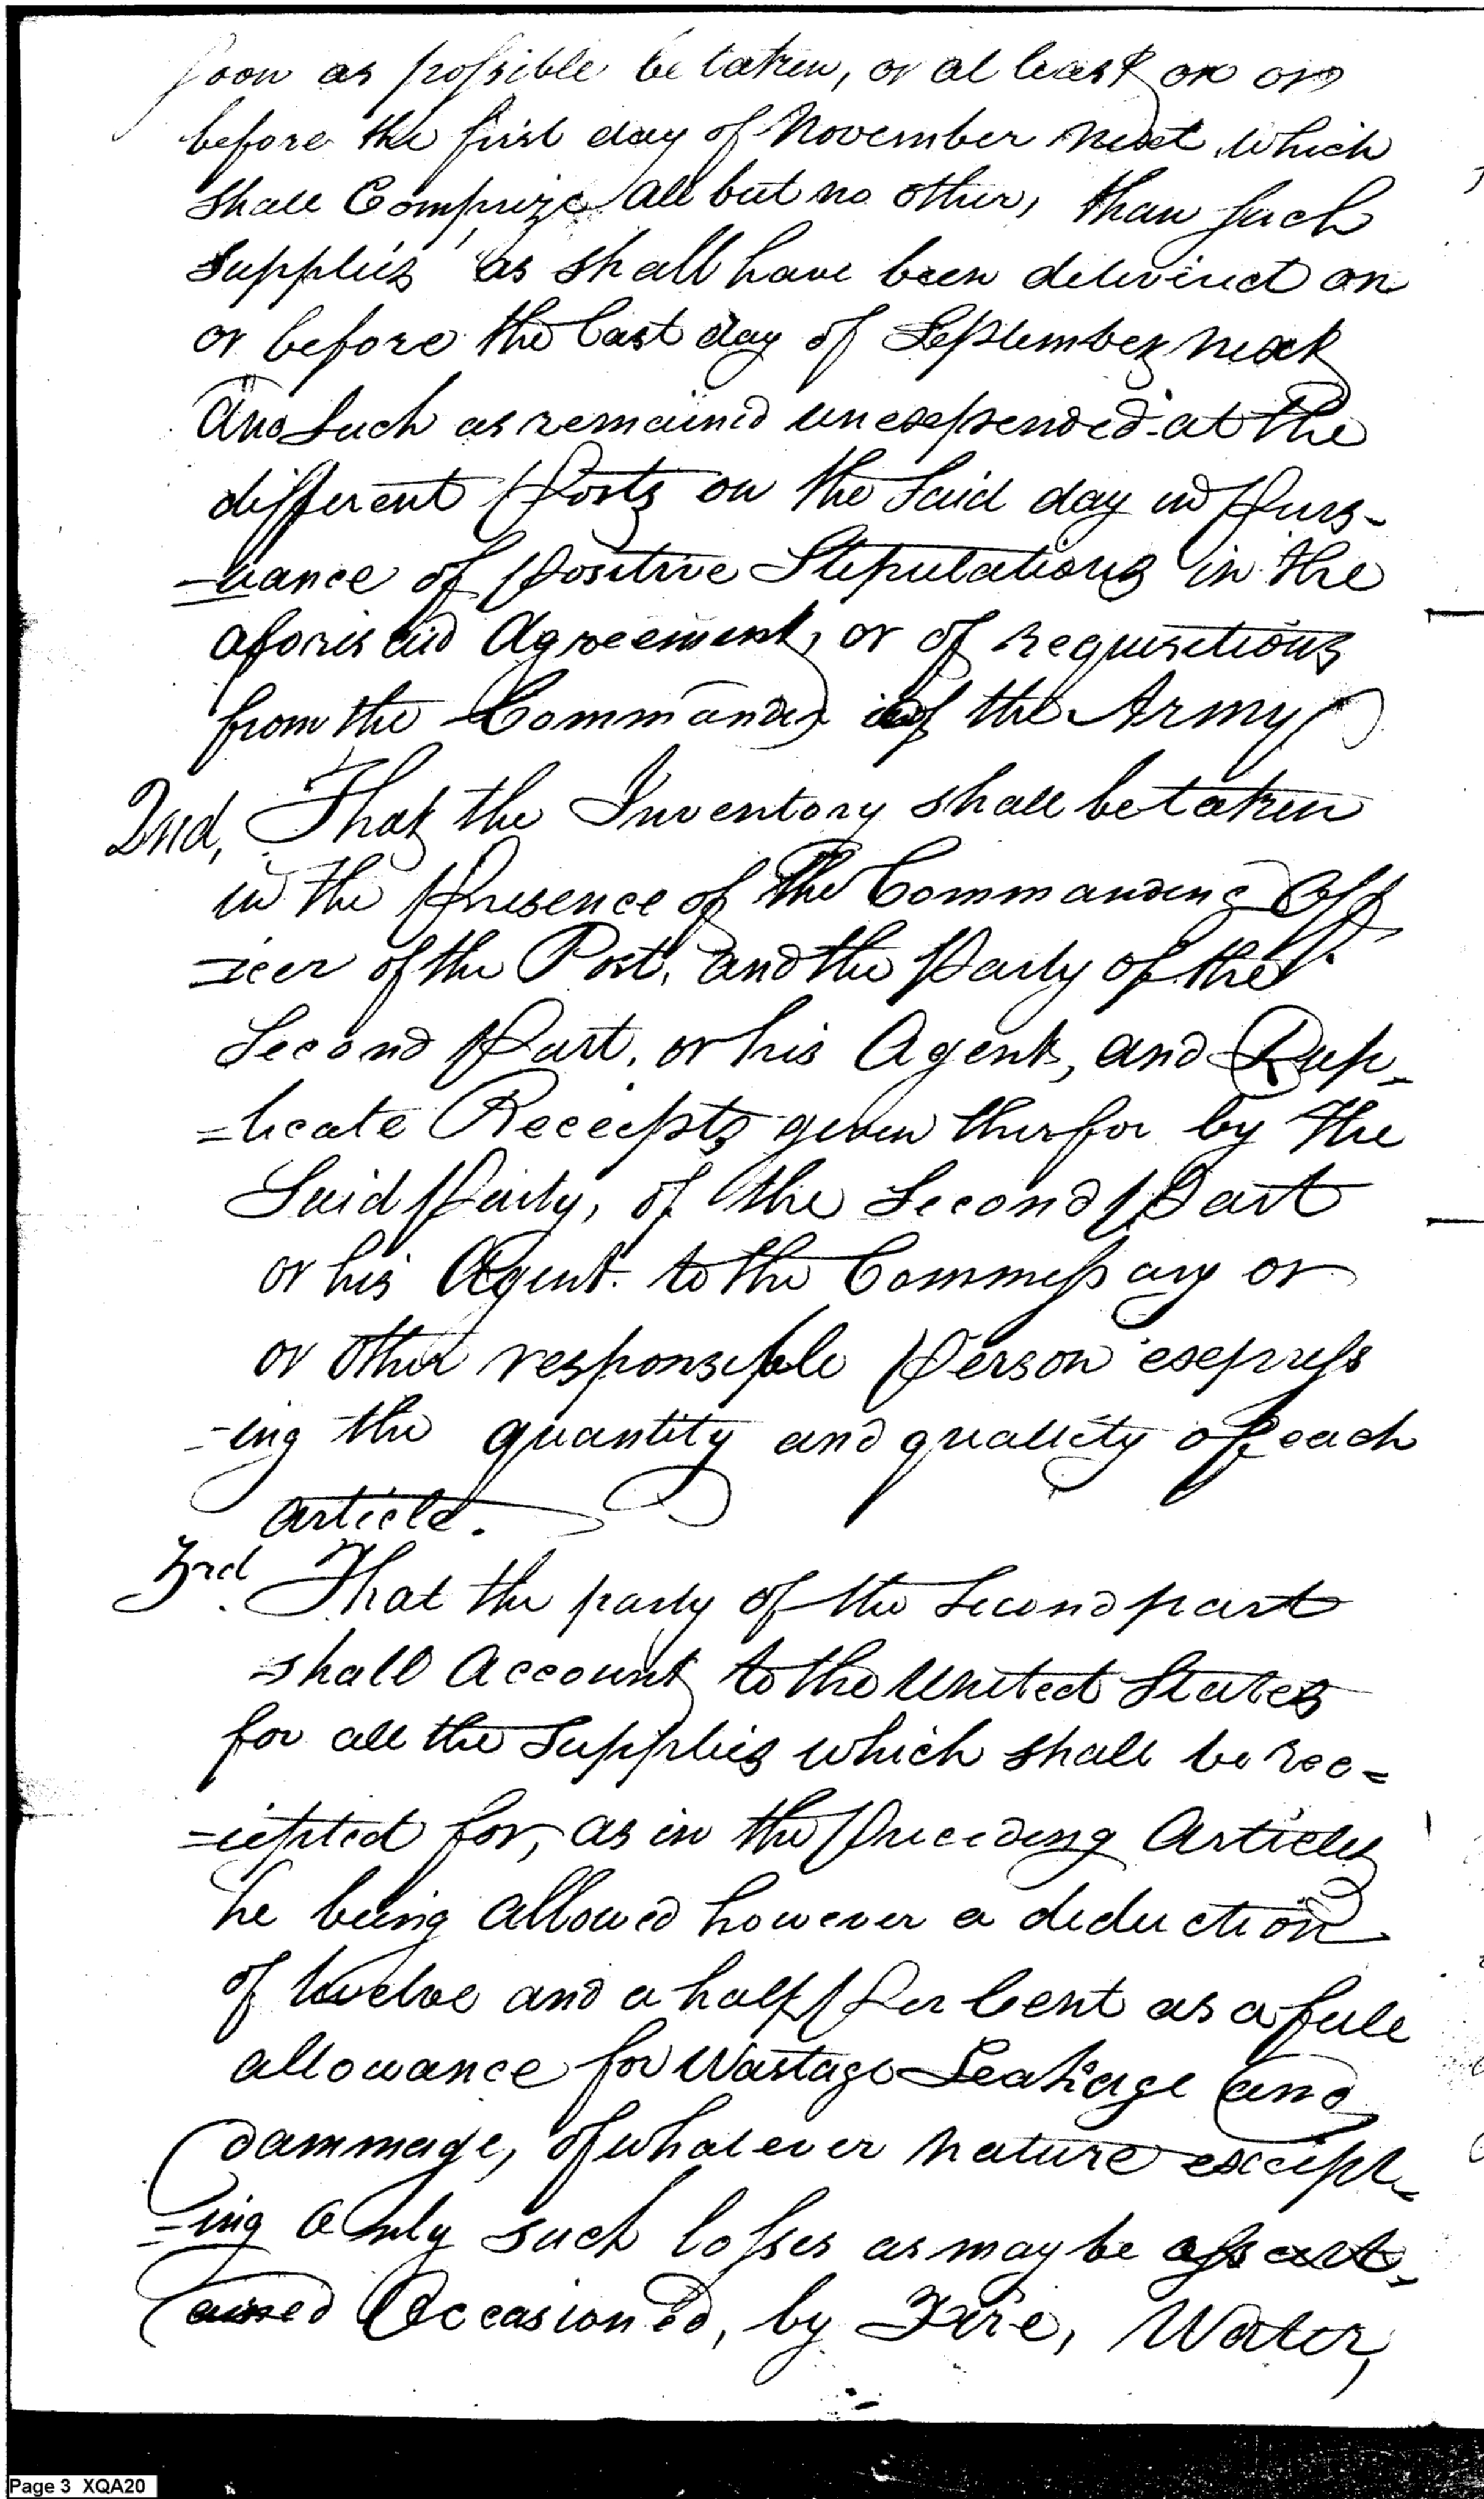 soon as possible be taken, or at least on or
before the first day of November next which
shall Comprize all but no other, than such
supplies as shall have been delivered on
or before the last day of September next
And such as remained unexpended at the
different Posts on the said day in Purs-
-uance of Positive Stipulations in the
aforesaid Agreement, or of requisitions
from the Commander of the Army
2nd, That the Inventory shall be taken
in the Presence of the Commanding Off
-icer of the Post, and the Party of the
Second Part, or his Agent, and Dup-
=licate Receipts given therfor by the
Said Party, of the Second Part
or his Agent. to the Commissary or
or other responsible Person express
-ing the quantity and quality of each
Article.
3rd. That the party of the Second part
shall Account to the United States
for all the Supplies which shall be rec=
=iepted for, as in the Preceding Article
he being allowed however a deduction
of twelve and a half Per Cent as a full
allowance for Wastage Leakage and
dammage, of whatever nature except-
-ing Only such losses as may be assert-
ained Occasioned, by Fire, Water,
Page 3 XQA20